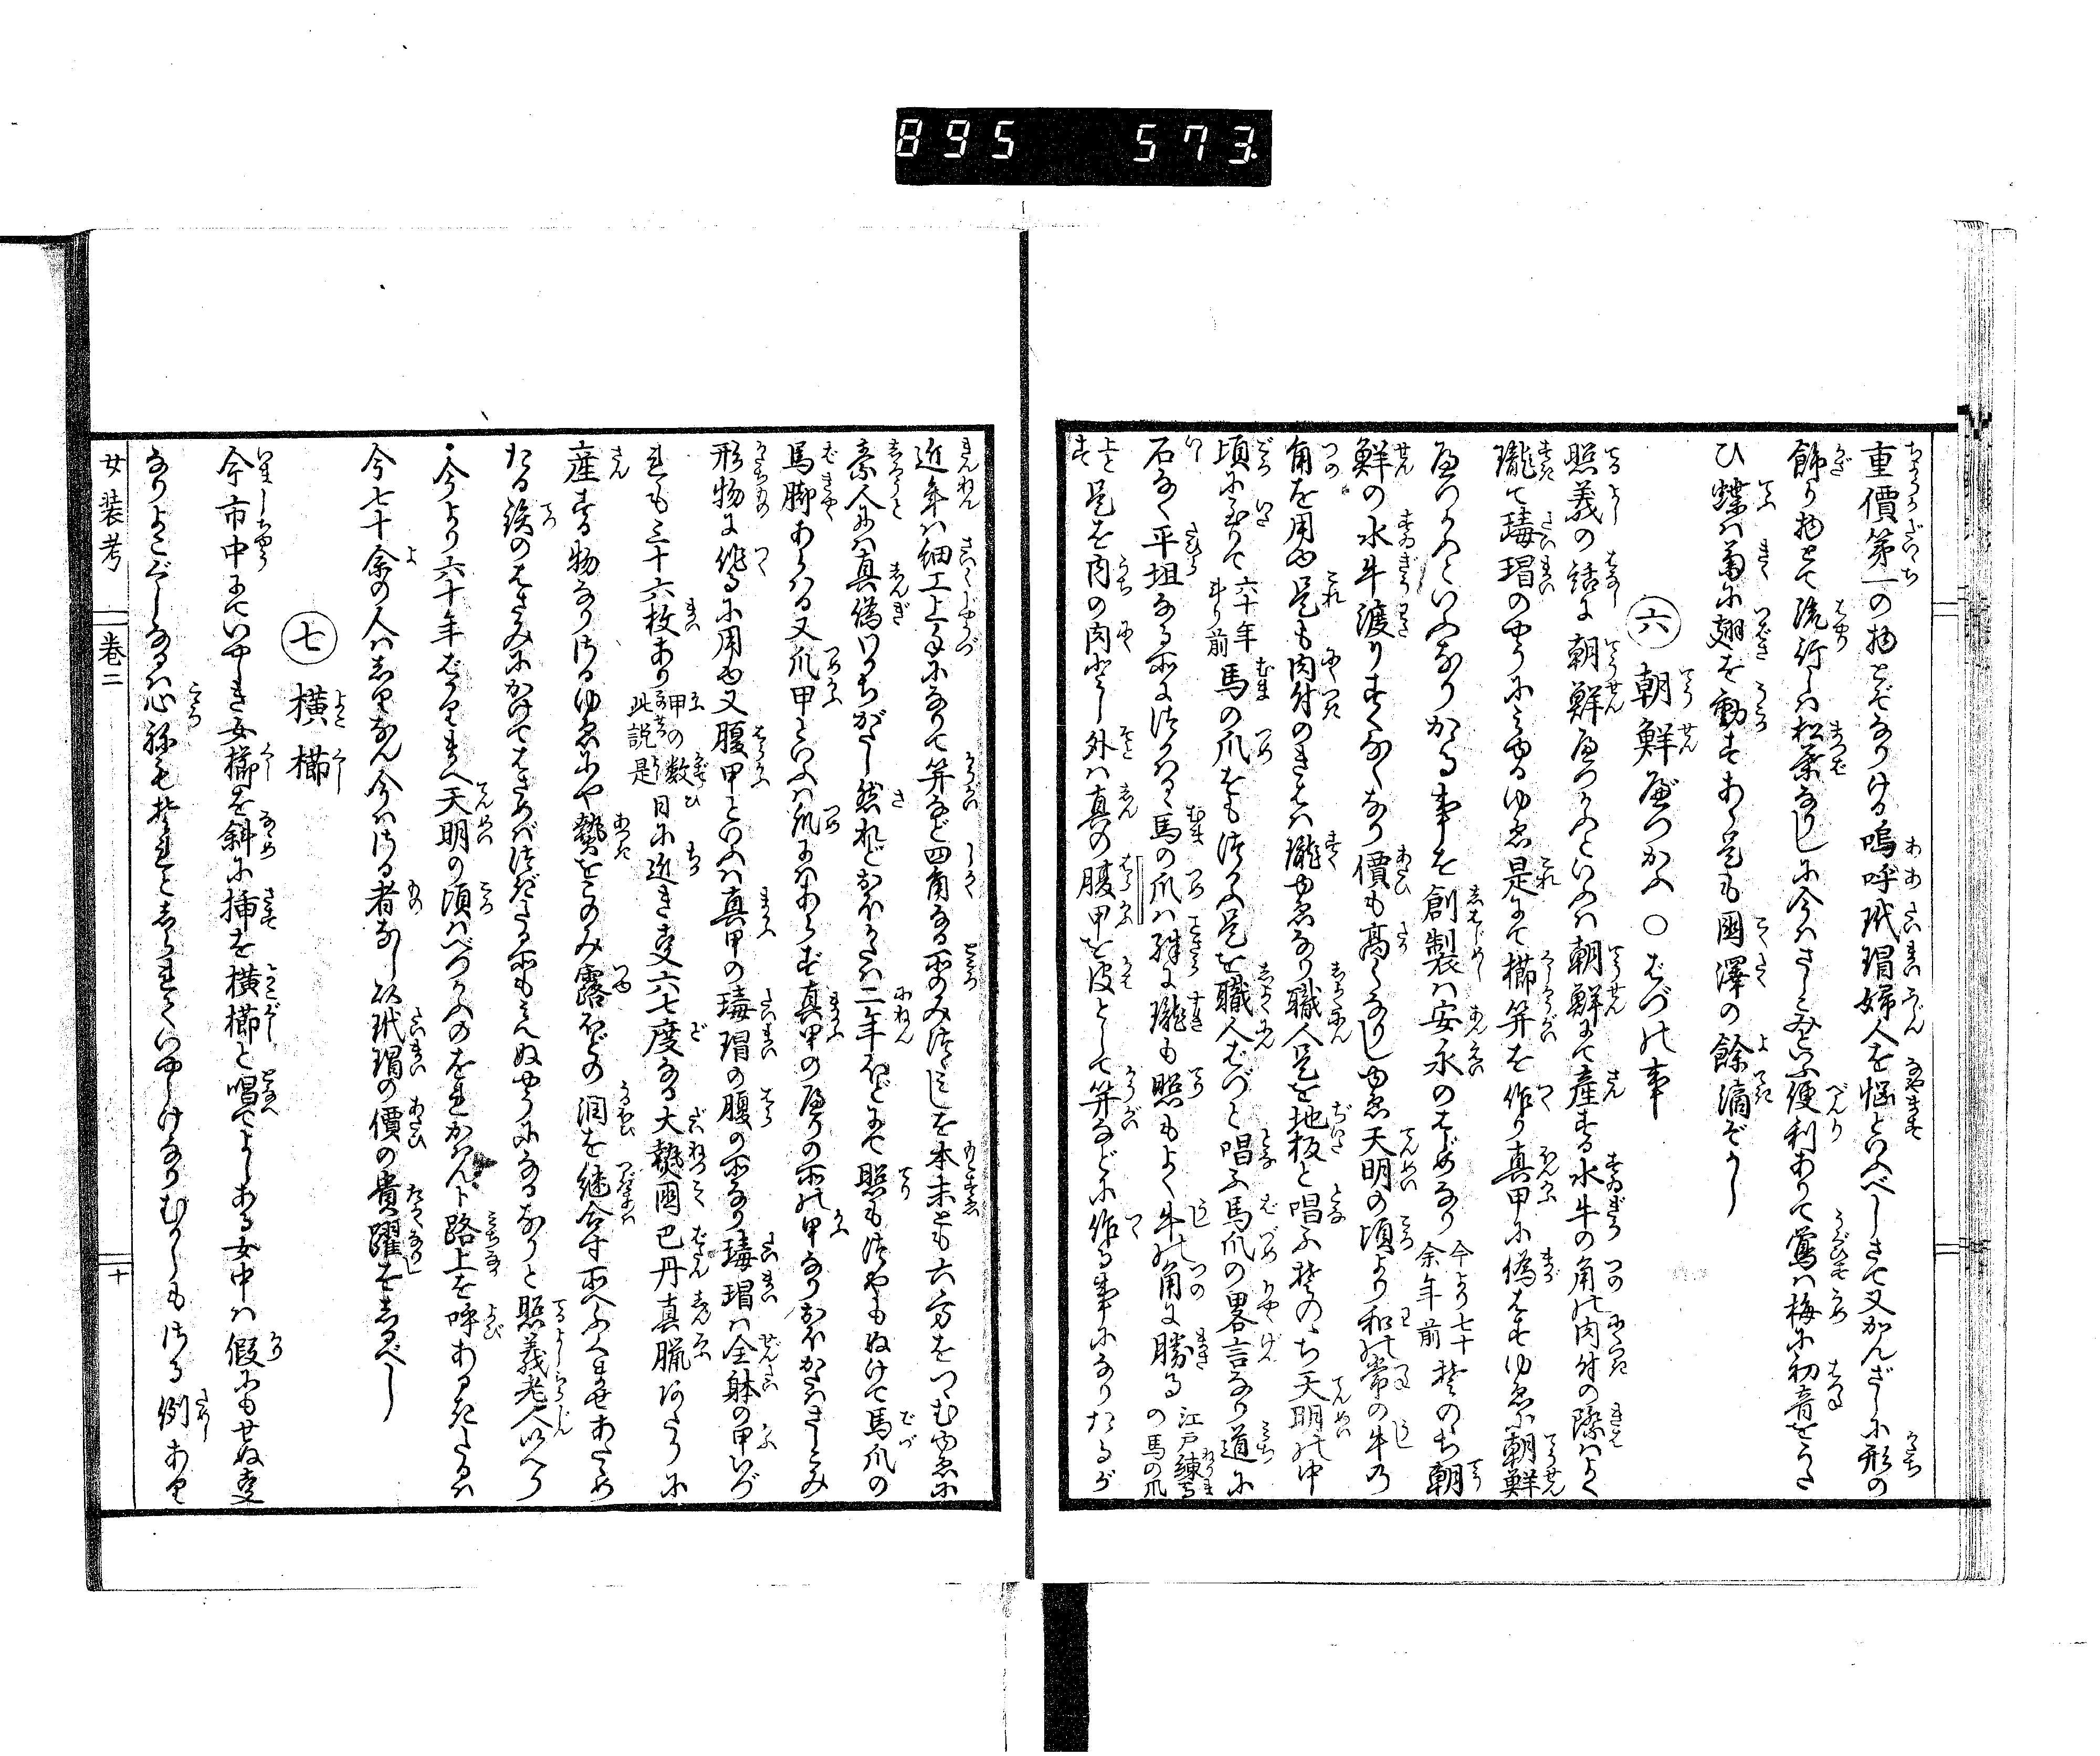 895 573.
重價第一の物とぞなりける嗚呼玳瑁婦人を悩といふべしさて又かんざしに形の
飾り物をして流行しハ松葉なりしに今ハさしこみといふ便利ありて鶯ハ梅に初音をうた
ひ蝶ハ菊に翅を動すあゝ是も國澤の餘滴ぞかし
六 朝鮮べつかふ ○ ばづの事
照義の話に朝鮮べつかふといふハ朝鮮にて産する水牛の角の肉付の際ハよく
瓏て瑇瑁のやうにみゆるゆゑ是にて櫛笄を作り真甲に偽はすゆゑに朝鮮
べつかふといふなりかゝる事を創製ハ安永のはじめなり 今より七十余年前 其のち朝
鮮の水牛渡りすくなくなり價も高くなりしゆゑ天明の頃より和の常の牛の
角を用ゆ是も肉付のきはハ瓏ゆゑなり職人是を地板と唱ふ其のち天明の中
頃に至りて 六十年まり前 馬の爪をも深かふ是を職人ばづと唱ふ馬爪の畧言なり道に
石なく平坦なる所につかはるゝ馬の爪ハ殊に瓏も照もよく牛の角に勝る 江戸練馬の馬の爪
上とす 是を内の肉にし外ハ真の腹甲を皮として笄などに作る事になりたるが
近年ハ細工上手になりて笄など四角なる所のみならしを本末とも六方をつつむゆゑに
素人にハ真偽わかちがたし然れどおほかたハ二年ほどにて照も潤やもぬけて馬爪の
馬脚あらハる又爪甲といふハ爪にハあらず真甲のへりの所の甲なりおほかたハさしこみ
形物に作るに用ゆ又腹甲といふハ真甲の瑇瑁の腹の所なり瑇瑁ハ全躰の甲いづ
れも三十六枚あり 甲の数此説是 日に近き事六七度なる大熱國巴丹真臘あたりに
産する物なりけるゆゑにや熱をこのみ露ほどの潤を継合す所へふくませあたゝめ
たる鋏のはさみにかけてはさめバ継だる所もみえぬやうになるなりと照義老人いへり
・今より六十年ばかりまへ天明の頃ハべつかふのをれかハんト路上を呼あるきたるハ
今七十余の人ハしりなん今ハける者なし以玳瑁の價の貴躍をしるべし
七 横櫛
今市中にていやしき女櫛を斜に挿を横櫛と唱てよしある女中ハ假にもせぬ事
なりよこぐしなるハ心弥も其れとしられていやしけなりむかしもける例あり
女装考 卷二 十